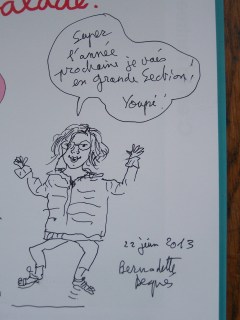 malade.
Super
l'année
prochaine je vais
en grande Section!
Youpié!
22 juin 2013
Bernadette
Després